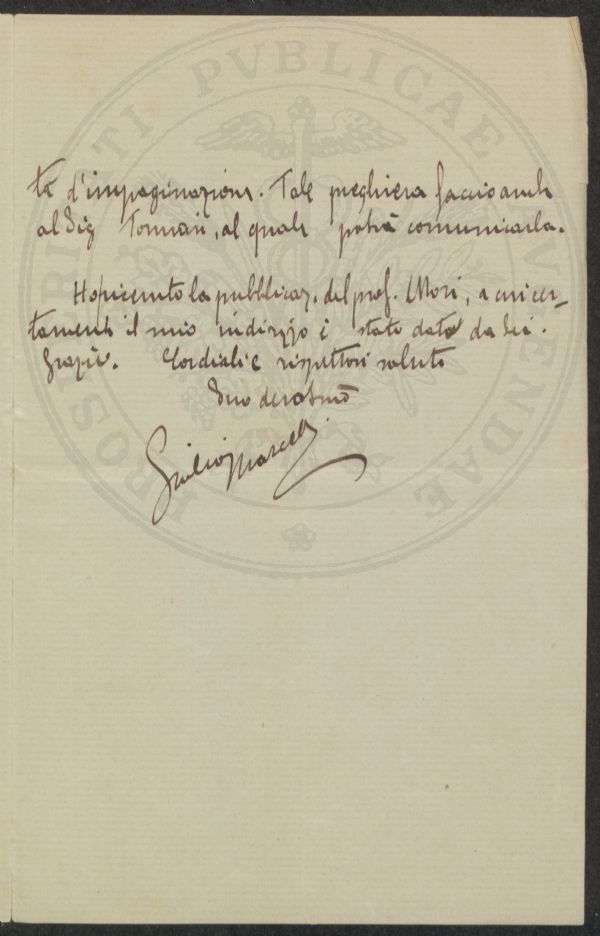 PVBLICAE
te d'impaginazione. Tale preghiera faccio anche
al Sig Tommasi, al quale potrà comunicarla.
Ho ricevuto la pubblicaz. del prof. Mori, a cui cer-
tamente il mio indirizzo è stato dato da Lei.
Grazie. Cordiali e rispettosi saluti
Suo devotmo
Giulio